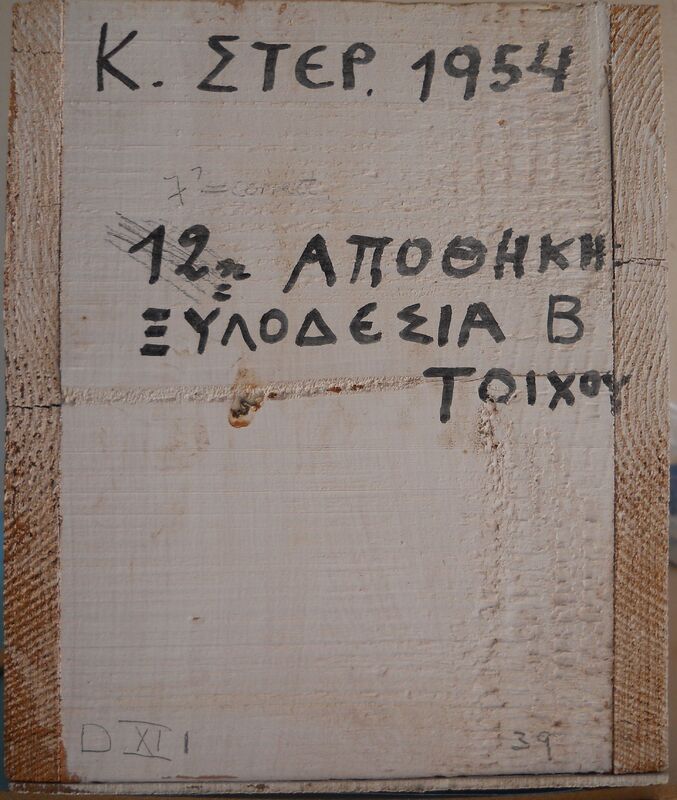 Κ. ΣΤΕΡ. 1954
7? = correct
12η ΑΠΟΘΗΚΗ
ΞΥΛΟΔΕΣΙΑ Β
ΤΟΙΧΟΥ
D XI 1
39